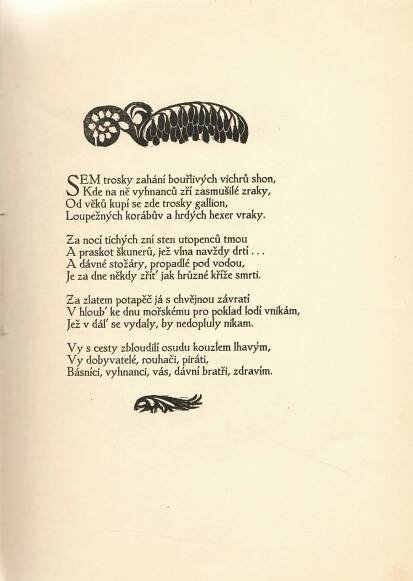 SEM trosky zahání bouřlivých vichrů shon,
Kde na ně vyhnanců zří zasmušilé zraky,
Od věků kupí se zde trosky gallion,
Loupežných korábův a hrdých hexer vraky.
Za nocí tichých zní sten utopenců tmou
A praskot škunerů, jež vlna navždy drtí . . .
A dávné stožáry, propadlé pod vodou,
Je za dne někdy zříť jak hrůzné kříže smrti.
Za zlatem potapěč já s chvějnou závratí
V hloub' ke dnu mořskému pro poklad lodí vnikám,
Jež v dál' se vydaly, by nedopluly nikam.
Vy s cesty zbloudilí osudu kouzlem lhavým,
Vy dobyvatelé, rouhači, piráti,
Básníci, vyhnanci, vás, dávní bratři, zdravím.